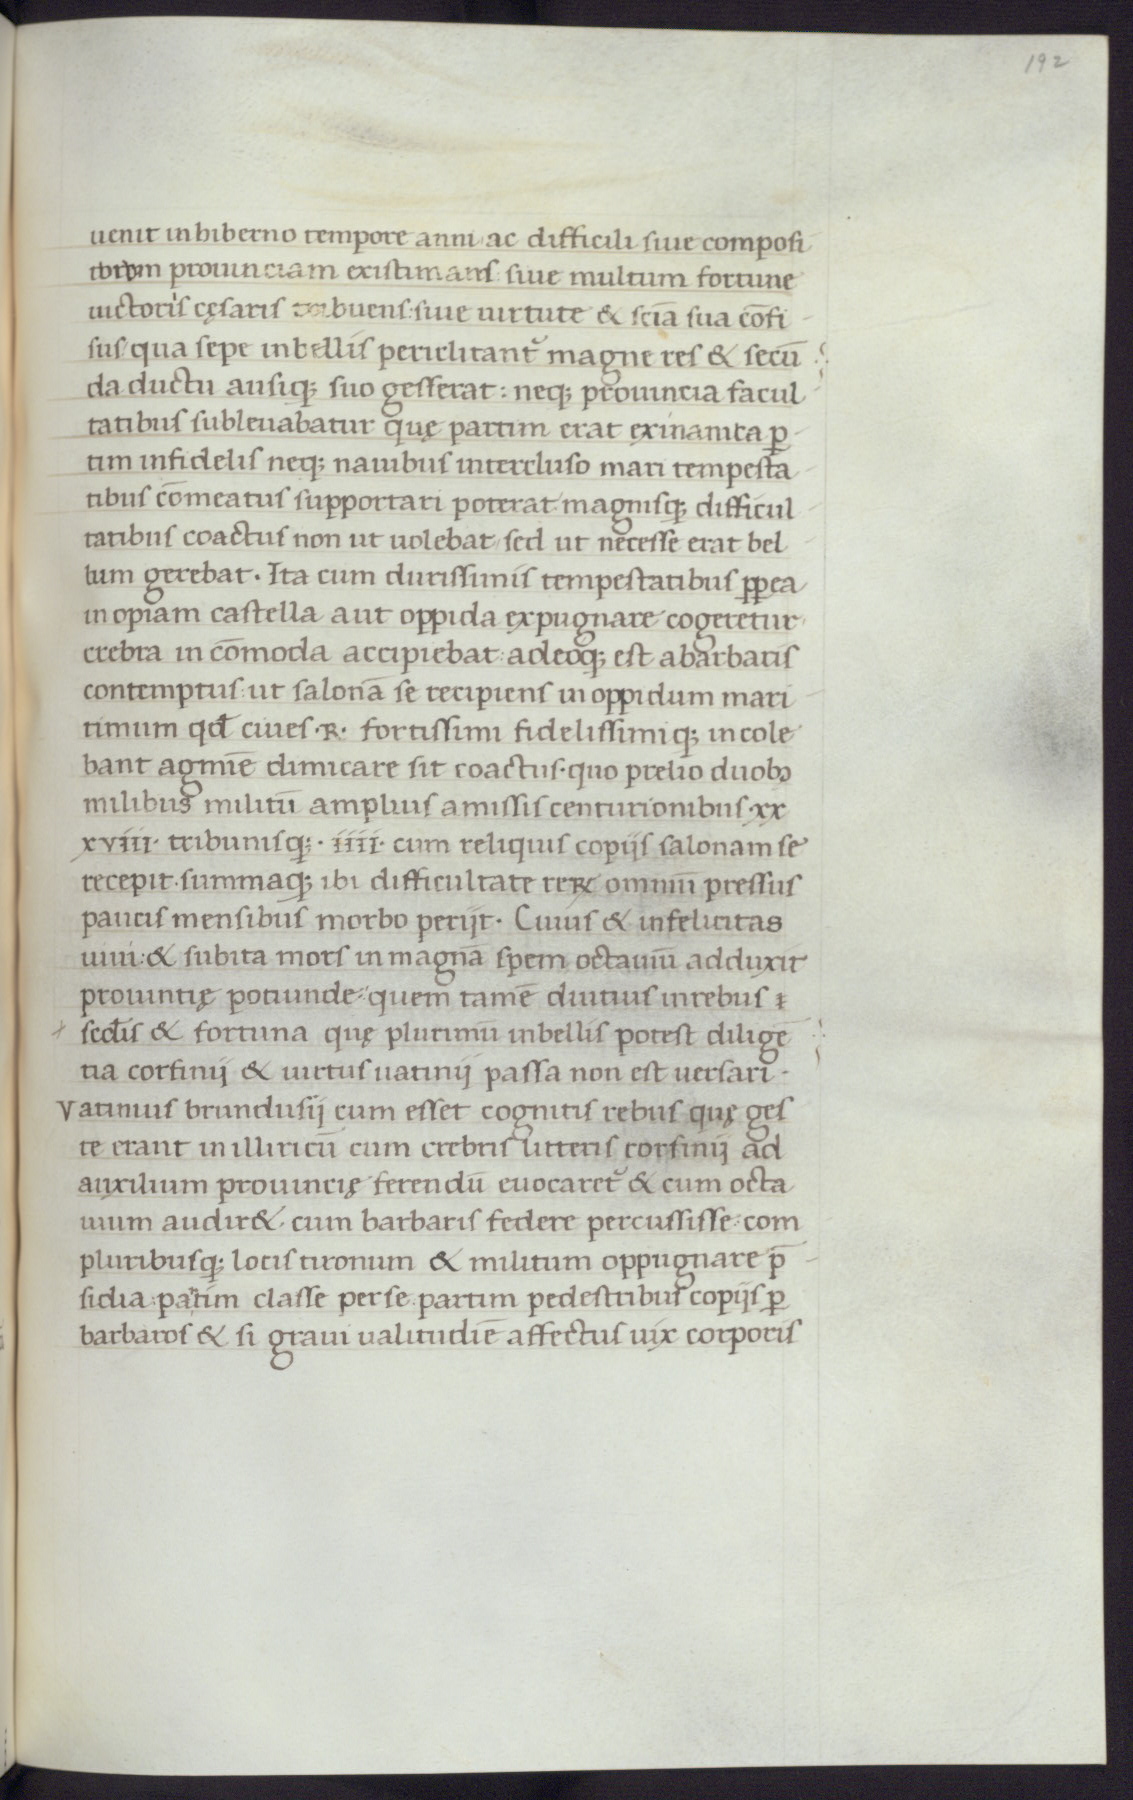 192
uenit in hiberno tempore anni ac difficili siue composi
torum prouinciam existimans siue multum fortune
uictoris cęsaris tribuens: siue uirtute & sciā sua cōfi
sus qua sepe in bellis periclitant᷑ magne res & secū
da ductu ausiq; suo gesserat: neq; prouincia facul
tatibus subleuabatur quę partim erat exinanita p̲
tim infidelis neq; nauibus intercluso mari tempesta
tibus cōmeatus supportari poterat magnisq; difficul
tatibus coactus non ut uolebat sed ut necesse erat bel
lum gerebat. Ita cum durissimis tempestatibus pp̲ea
inopiam castella aut oppida expugnare cogeretur
crebra incōmoda accipiebat: adeoq; est abarbaris
contemptus: ut salonā se recipiens in oppidum mari
timum qđ ciues .R. fortissimi fidelissimiq; incole
bant agmīe dimicare sit coactus. quo prelio duobꝫ
milibus militū amplius amissis centurionibus .xx
xviii. tribunisq; .iiii. cum reliquis copijs salonam se
recepit. summaq; ibi difficultate reꝝ omniū pressus
paucis mensibus morbo perijt. Cuius & infelicitas
uiui: & subita mors in magnā spem octauiū adduxit
prouintię potiunde: quem tamē diutius in rebus ꝓ
sed̄is & fortuna quę plurimū in bellis potest diligē
tia corfinij & uirtus uatinij passa non est uersari.
Vatinius brundusij cum esset cognitis rebus quę ges
te erant in illiricū cum crebris litteris corfinij ad
auxilium prouincię ferendū euocaret᷑ & cum octa
uium audir& cum barbaris federe percussisse: com
pluribusq; locis tironum & militum oppugnare p̄
sidia: partim classe per se partim pedestribus copijs p̲
barbaros & si graui ualitudīe affectus uix corporis